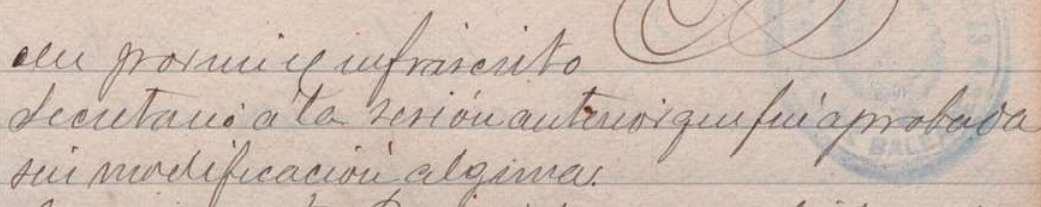 por mi el infrascrito
Secretario a la sesión anterior que fué aprobada
sin modificación alguna.
BALE